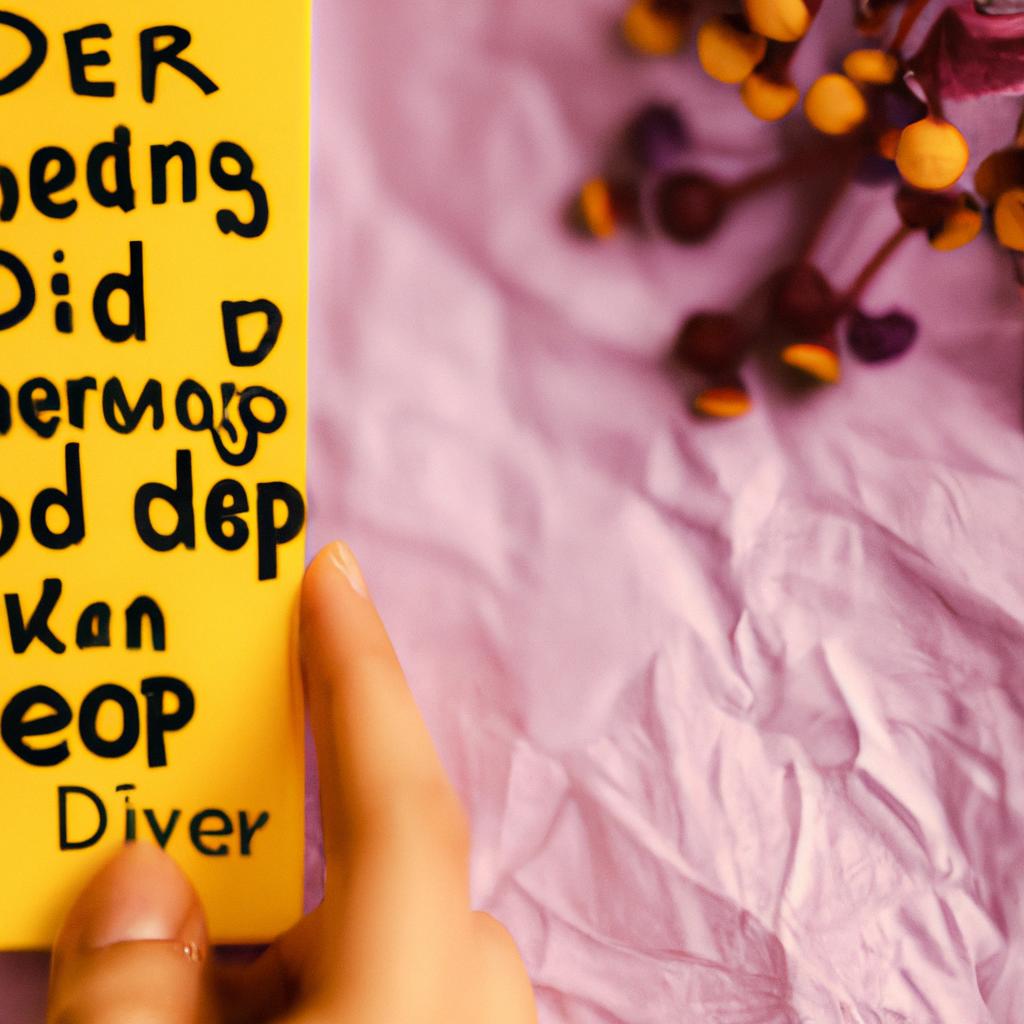 DER
edng
Did
D
ermogo
od dep
Kan
eop
Diver